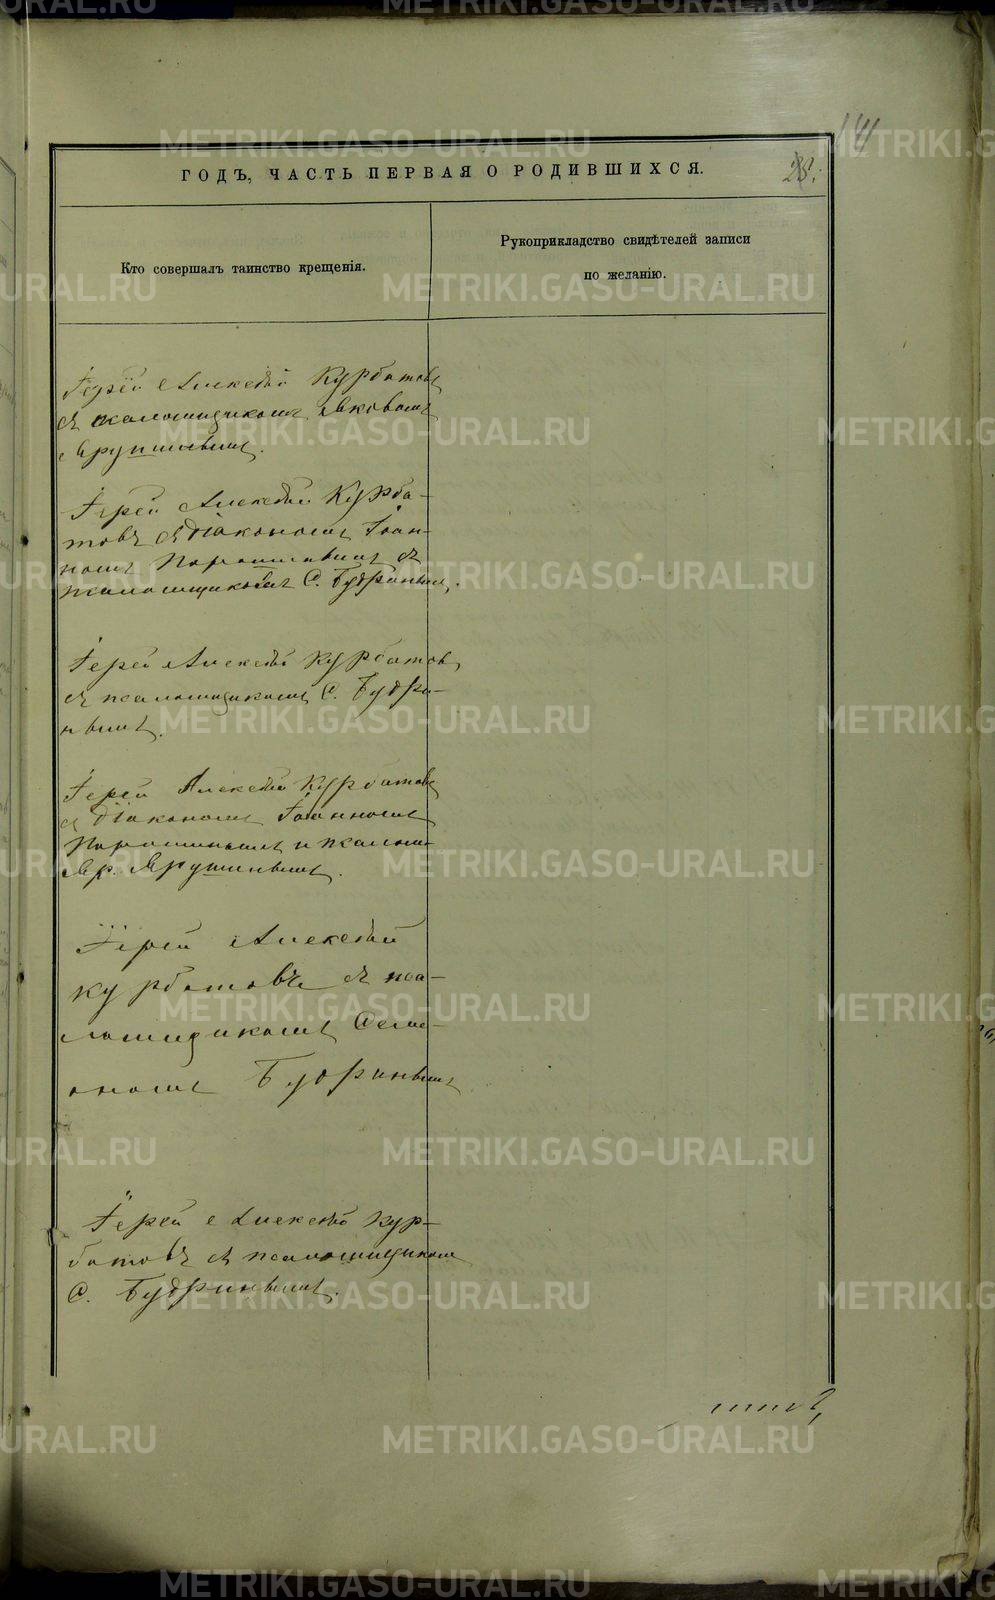 141
ГОДЪ, ЧАСТЬ ПЕРВАЯ О РОДИВШИХСЯ.
28.
Кто совершалъ таинство крещенія.
Рукоприкладство свидѣтелей записи
по желанію.
Іерей Алексѣй Курбатовъ
съ псаломщикомъ
Іерей Алексѣй Курба-
товъ съ діакономъ Іоан-
номъ съ
псаломщикомъ С. Будринымъ.
Іерей Алексѣй Курбатовъ
съ псаломщикомъ С. Будри-
нымъ.
Іерей Алексѣй Курбатовъ
съ діакономъ Іоанномъ
и псалом-
Іерей Алексѣй
Курбатовъ съ пса-
ломщикомъ Симе-
ономъ Будринымъ
Іерей Алексѣй Кур-
батовъ съ псаломщикомъ
С. Будринымъ.
METRIKI.GASO-URAL.RU